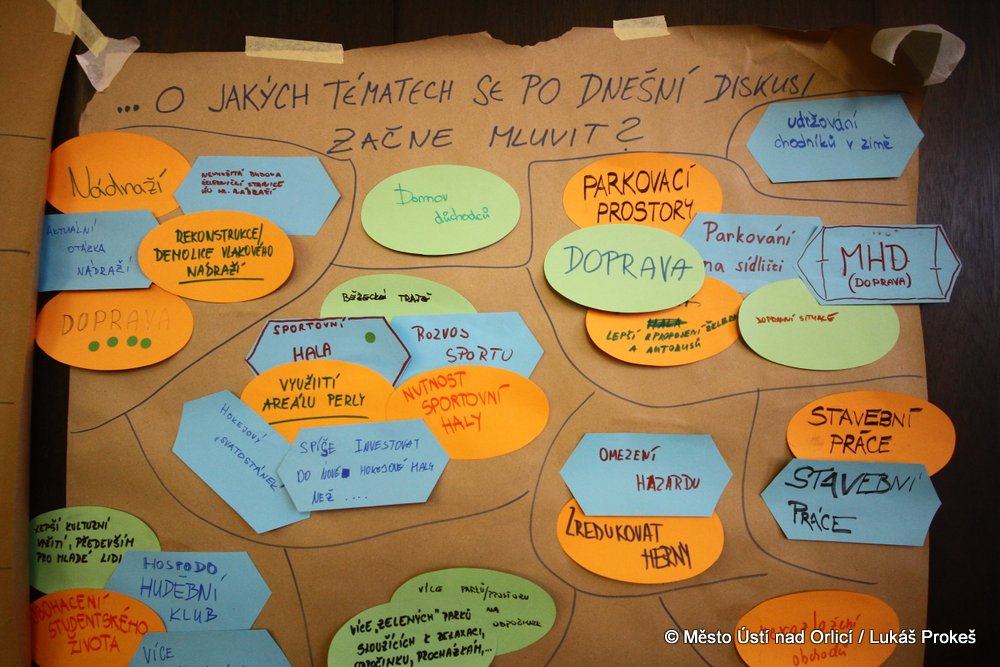 ... O JAKÝCH TÉMATECH SE PO DNEŠNÍ DISKUSI
ZAČNE MLUVIT?
udržování
chodníků v zimě
Nádraží
NEVYUŽITÁ BUDOVA
ŽELEZNIČNÍ STANICE
AKTUÁLNÍ
OTÁZKA
NÁDRAŽÍ
REKONSTRUKCE/
DEMOLICE VLAKOVÉHO
NÁDRAŽÍ
DOPRAVA
Domov
důchodců
PARKOVACÍ
PROSTORY
Parkování
na sídlišti
DOPRAVA
MHD
(DOPRAVA)
LEPŠÍ
A AUTOBUSŮ
DOPRAVNÍ SITUACE
BĚŽECKÁ
SPORTOVNÍ
HALA
ROZVOJ
SPORTU
VYUŽITÍ
AREÁLU PERLY
NUTNOST
SPORTOVNÍ
HALY
HOKEJOVÝ
"SVATOSTÁNEK"
SPÍŠE INVESTOVAT
DO NOVÉ HOKEJOVÉ HALY
NEŽ ....
OMEZENÍ
HAZARDU
ZREDUKOVAT
HERNY
STAVEBNÍ
PRÁCE
STAVEBNÍ
PRÁCE
LEPŠÍ KULTURNÍ
VYŽITÍ, PŘEDEVŠÍM
PRO MLADÉ LIDI
HOSPODO
HUDEBNÍ
KLUB
OBOHACENÍ
STUDENTSKÉHO
ŽIVOTA
VÍCE
VÍCE PARKŮ/PROSTORU
NA
ODPOČINEK
VÍCE „ZELENÝCH" PARKŮ
SLOUŽÍCÍCH K RELAXACI,
ODPOČINKU, PROCHÁZKÁM,...
obchodů
© Město Ústí nad Orlicí / Lukáš Prokeš